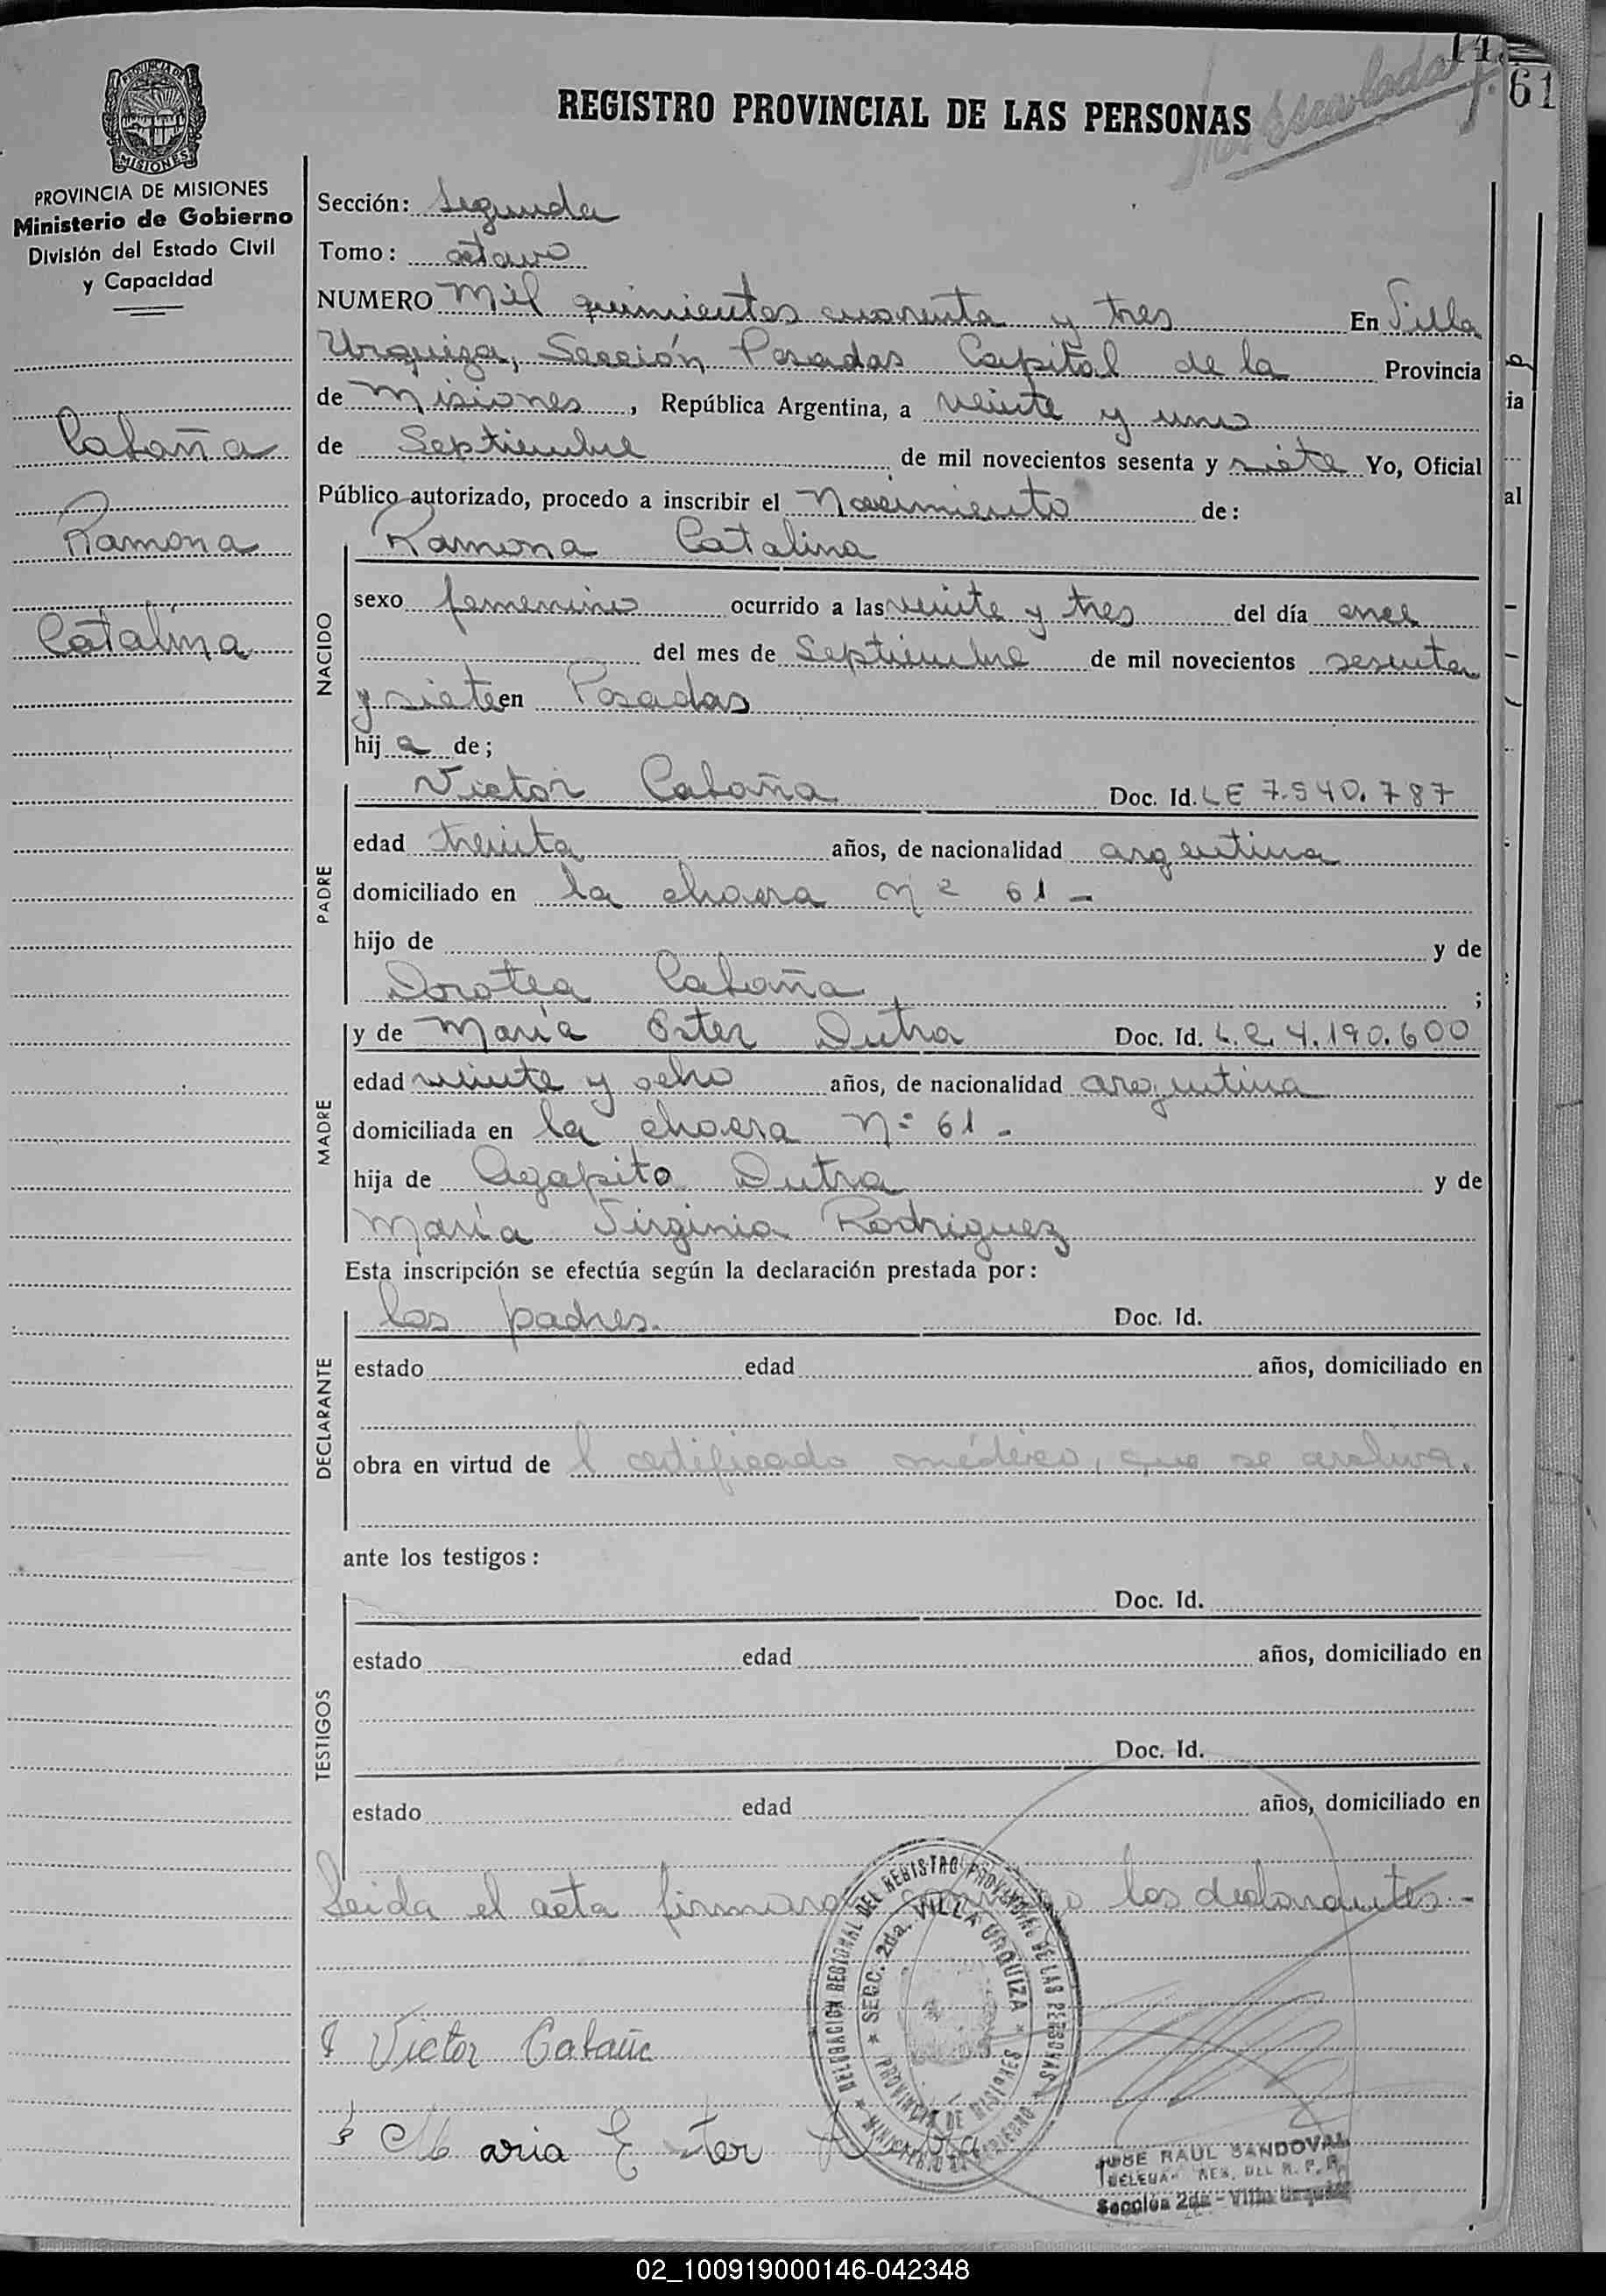 14
61
REGISTRO PROVINCIAL DE LAS PERSONAS
PROVINCIA DE MISIONES
MISIONES
PROVINCIA DE MISIONES
Ministerio de Gobierno
División del Estado Civil
y Capacidad
Cabaña
Ramona
Catalina
Sección: Segunda
Tomo: octavo
NUMERO Mil quinientos cuarenta y tres En Villa
Urquiza, Sección Posadas Capital de la Provincia
de Misiones, República Argentina, a veinte y uno
de Septiembre de mil novecientos sesenta y siete Yo, Oficial
Público autorizado, procedo a inscribir el Nacimiento de:
Ramona Catalina
NACIDO
sexo femenino ocurrido a las veinte y tres del día once
del mes de Septiembre de mil novecientos sesenta
y siete en Posadas
hija de;
PADRE
Victor Cabaña Doc. Id. LE 7.540.787
edad treinta años, de nacionalidad argentina
domiciliado en la chacra Nº 61 -
hijo de y de
Dorotea Cabaña ;
MADRE
y de María Ester Dutra Doc. Id. L.C. 4.190.600
edad veinte y ocho años, de nacionalidad argentina
domiciliada en la chacra Nº 61 -
hija de Agapito Dutra y de
María Virginia Rodriguez
Esta inscripción se efectúa según la declaración prestada por:
DECLARANTE
los padres. Doc. Id.
estado edad años, domiciliado en
obra en virtud de l certificado médico, que se archiva.
ante los testigos:
TESTIGOS
Doc. Id.
estado edad años, domiciliado en
Doc. Id.
estado edad años, domiciliado en
Leida el acta firmaron conmigo los declarantes -
DELEGACION REGIONAL DEL REGISTRO PROVINCIAL DE LAS PERSONAS
SECC. 2da. VILLA URQUIZA
PROVINCIA DE MISIONES
MINISTERIO DE GOBIERNO
Victor Cabaña
Maria Ester
JOSE RAUL SANDOVAL
DELEGA REG. DEL R. P. P.
Sección 2da - Villa Urquiza
02_100919000146-042348